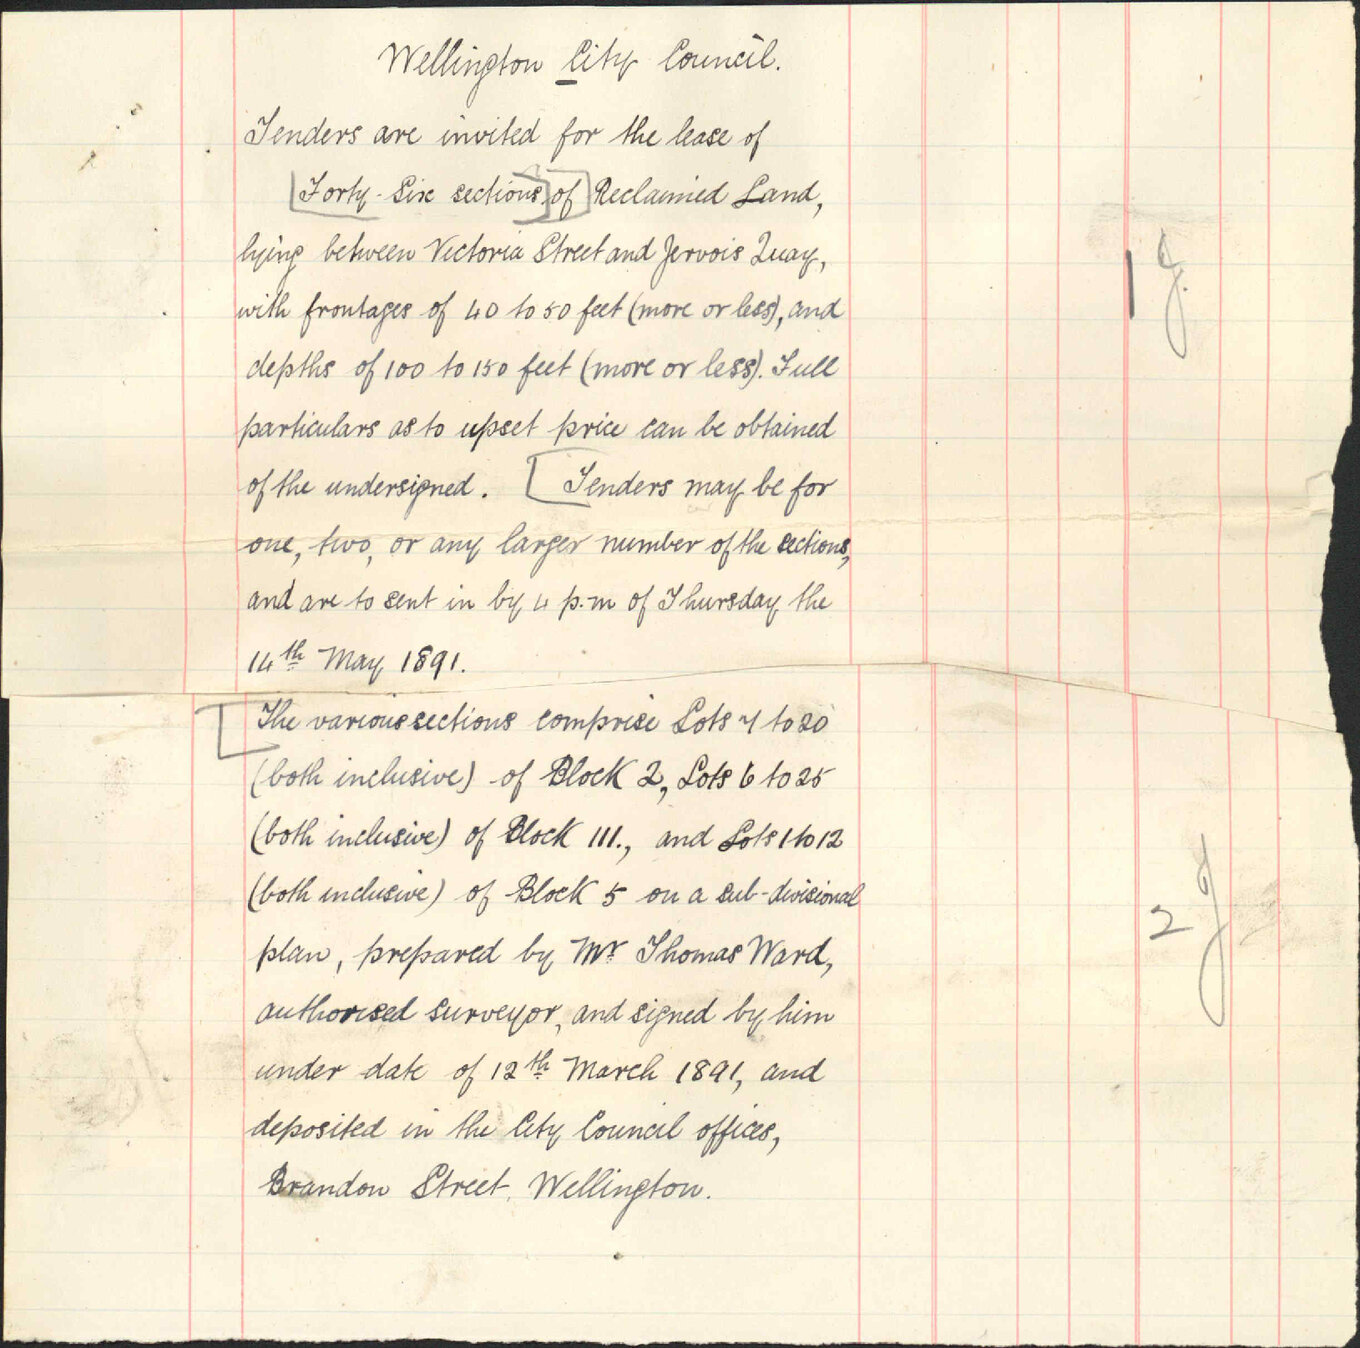 Wellington City Council.
Tenders are invited for the lease of
[Forty-Six sections] of] Reclaimed Land,
lying between Victoria Street and Jervois Quay,
with frontages of 40 to 50 feet (more or less), and
depths of 100 to 150 feet (more or less). Full
particulars as to upset price can be obtained
of the undersigned. [Tenders may be for
one, two, or any larger number of the sections,
and are to sent in by 4 p.m of Thursday the
14th May 1891.
[The various sections comprise Lots 7 to 20
(both inclusive) of Block 2, Lots 6 to 25
(both inclusive) of Block III., and Lots 1 to 12
(both inclusive) of Block 5 on a sub-divisional
plan, prepared by Mr Thomas Ward,
authorised surveyor, and signed by him
under date of 12th March 1891, and
deposited in the City Council offices,
Brandon Street, Wellington.
1
2